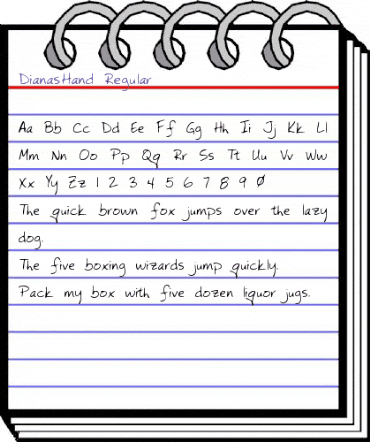 DianasHand Regular
Aa Bb Cc Dd Ee Ff Gg Hh Ii Jj Kk Ll
Mm Nn Oo Pp Qq Rr Ss Tt Uu Vv Ww
Xx Yy Zz 1 2 3 4 5 6 7 8 9 0
The quick brown fox jumps over the lazy
dog.
The five boxing wizards jump quickly.
Pack my box with five dozen liquor jugs.